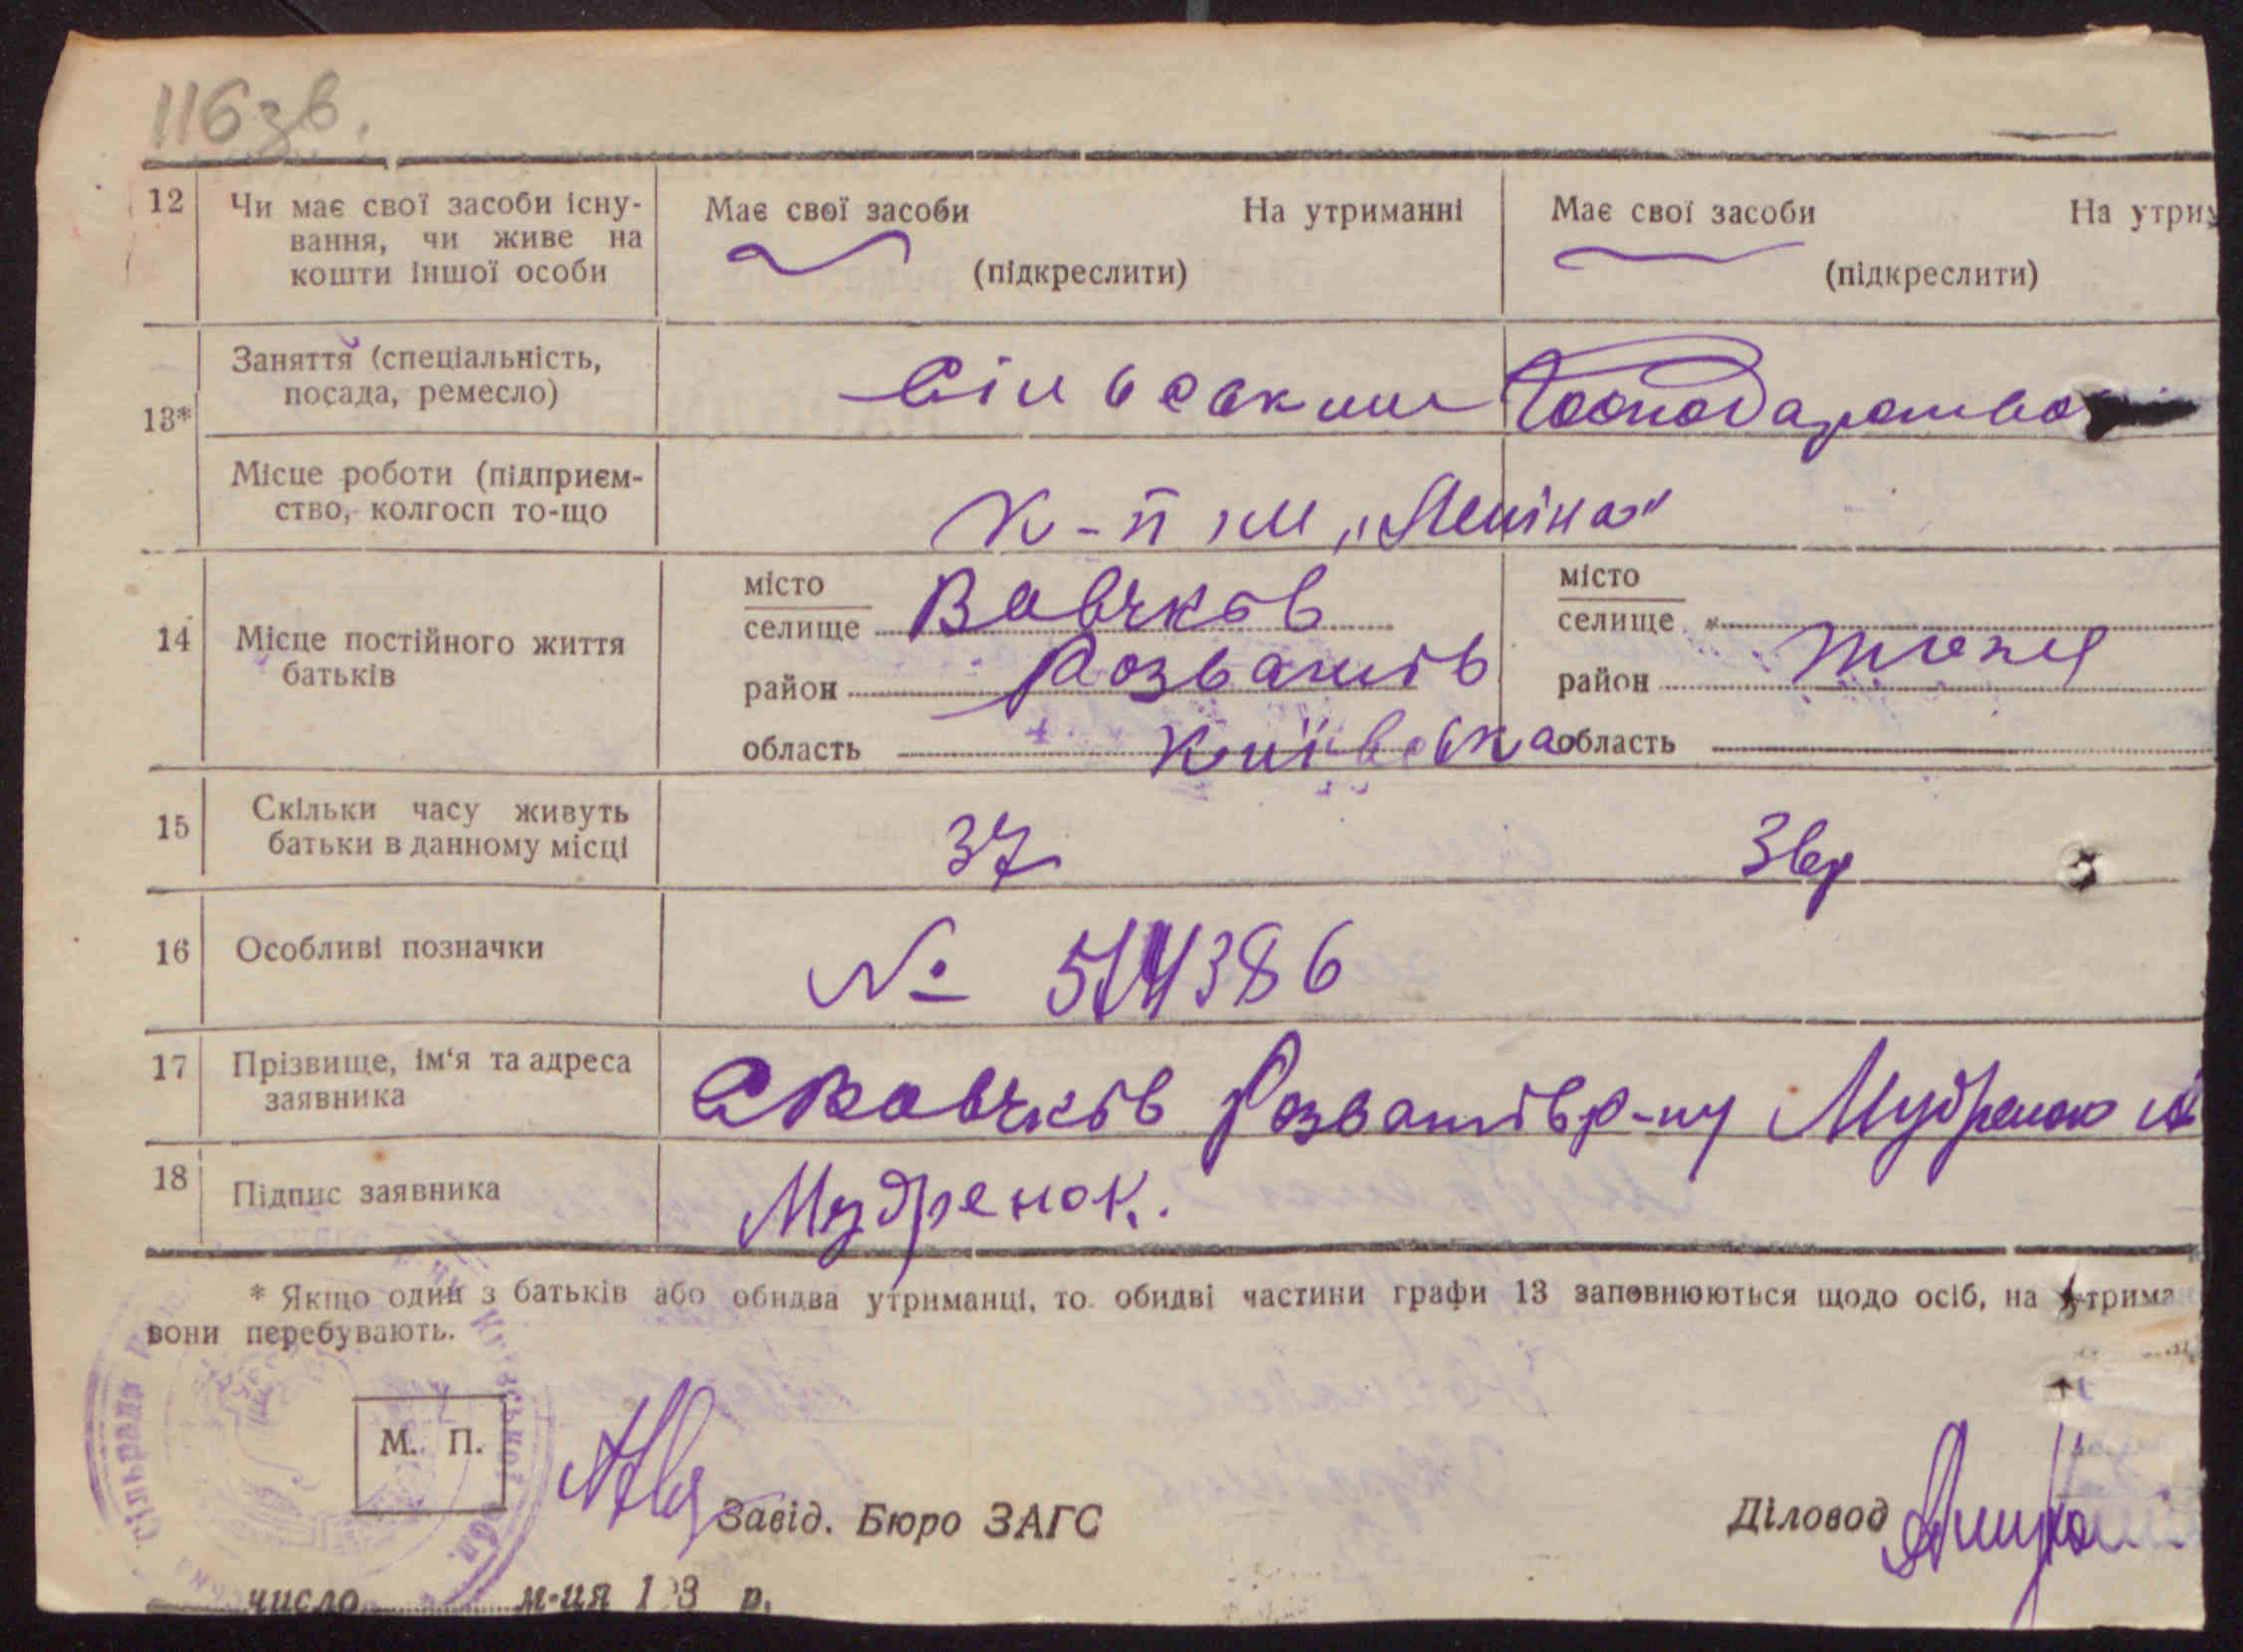 116зв.
12 Чи має свої засоби існу- Має свої засоби На утриманні Має свої засоби На утрим
вання, чи живе на
кошти іншої особи (підкреслити) (підкреслити)
13* Заняття (спеціальність,
посада, ремесло) Сільське Господарство
Місце роботи (підприєм-
ство, колгосп то-що К-п ім „Леніна"
14 Місце постійного життя
батьків
місто
селище Вовчків
район Розважів
область Київська
місто
селище
район тожея
область
15 Скільки часу живуть
батьки в данному місці 37
16 Особливі позначки № 514386
17 Прізвище, ім'я та адреса
заявника С Вовчків Розважів р-ну Мудренок
18 Підпис заявника Мудренок.
* Якщо один з батьків або обидва утриманці, то обидві частини графи 13 заповнюються щодо осіб, на утрима
вони перебувають.
Сільрада
М. П.
Завід. Бюро ЗАГС Діловод
число м-ця 193 р.